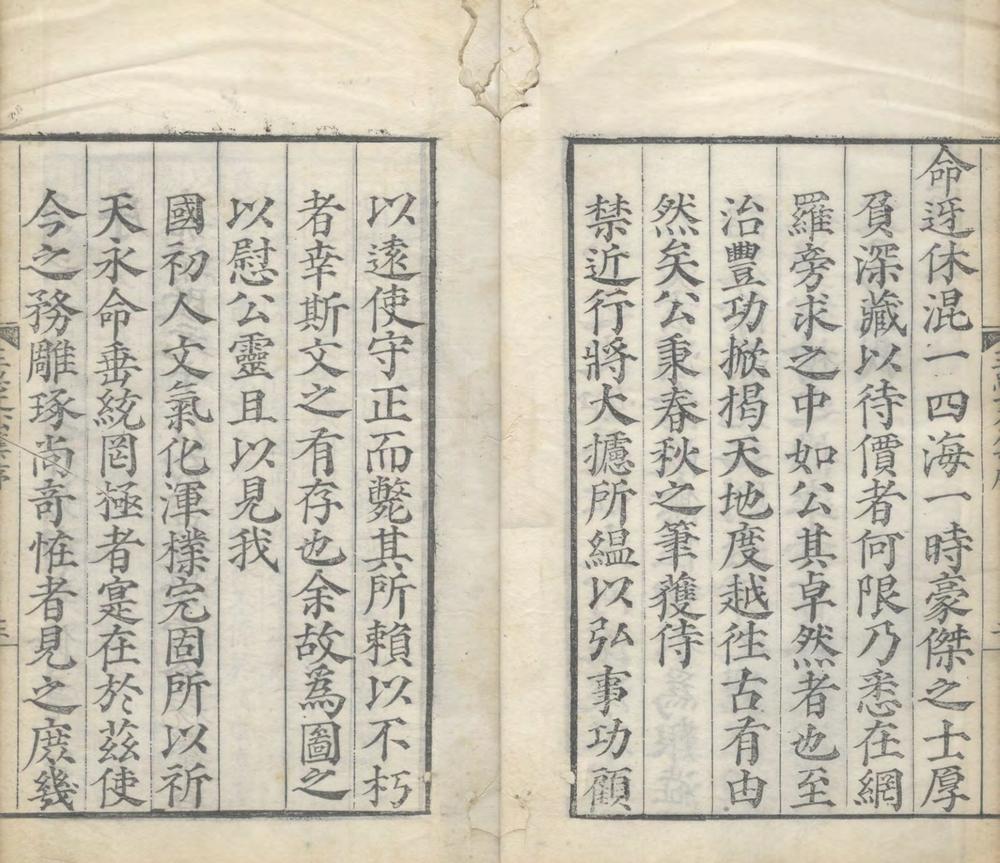 命迓休混一四海一時豪傑之士厚
負深藏以待價者何限乃悉在網
羅旁求之中如公其卓然者也至
治豐功掀揭天地度越徃古有由
然矣公秉春秋之筆獲待
禁近行將大攄所緼以弘事功顧
以遠使守正而斃其所賴以不朽
者幸斯文之有存也余故為圖之
以慰公靈且以見我
國初人文氣化渾樸完固所以祈
天永命垂統罔極者寔在於茲使
今之務雕琢尚竒恠者見之庶幾